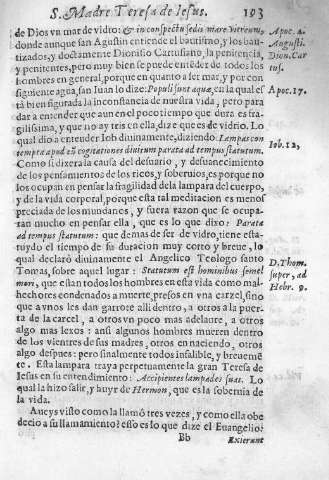 S. Madre Teresa de Iesus. 193
de Dios vn mar de vidro: & in conspectu sedis mare vitreum,
donde aunque san Agustin entiende el bautismo, y los bau-
tizados, y doctamente Dionisio Cartusiano, la penitencia,
y penitentes, pero muy bien se puede entẽder de todos los
hombres en general, porque en quanto a ser mar, y por con
siguiente agua, san Iuan lo dize: Populi sunt aquæ, en la qual es
tà bien figurada la inconstancia de nuestra vida, pero para
dar a entender que aun en el poco tiempo que dura es fra-
gilissima, y que no ay tres en ella, dize que es de vidrio. Lo
qual dio a entender Iob diuinamente, diziendo: Lampas con
tempta apud cogitationes diuitum parata ad tempus statutum.
Como si dixera la causa del desuario, y desuanecimiento
de los pensamientos de los ricos, y soberuios, es porque no
los ocupan en pensar la fragilidad dela lampara del cuerpo,
y de la vida corporal, porque esta tal meditacion es menos
preciada de los mundanos, y fuera razon que se ocupa-
ran mucho en pensar ella, que es lo que dixo: Parata
ad tempus statutum: que demas de ser de vidro, tiene esta-
tuydo el tiempo de su duracion muy corto y breue, lo
qual declarò diuinamente el Angelico Teologo santo
Tomas, sobre aquel lugar: Statutum est hominibus semel
mori, que estàn todos los hombres en esta vida como mal-
hechores condenados a muerte, presos en vna carcel, sino
que a vnos les dan garrote alli dentro, a otros a la puer-
ta de la carcel, a otros vn poco mas adelante, a otros
algo mas lexos: ansi algunos hombres mueren dentro
de los vientres de sus madres, otros en naciendo, otros
algo despues: pero finalmente todos infalible, y breuemẽ
te. Esta lampara traya perpetuamente la gran Teresa de
Iesus en su entendimiento: Accipientes lampades suas. Lo
qual la hizo salir, y huyr de Hermon, que es la soberuia de
la vida.
Aueys visto como la llamò tres vezes, y como ella obe
decio a su llamamiento? esso es lo que dize el Euangelio:
Bb Exierunt
Apoc. 4.
Augusti.
Dion. Car
tus.
Apoc. 17.
Iob. 12,
D. Thom.
super, ad
Hebr. 9.